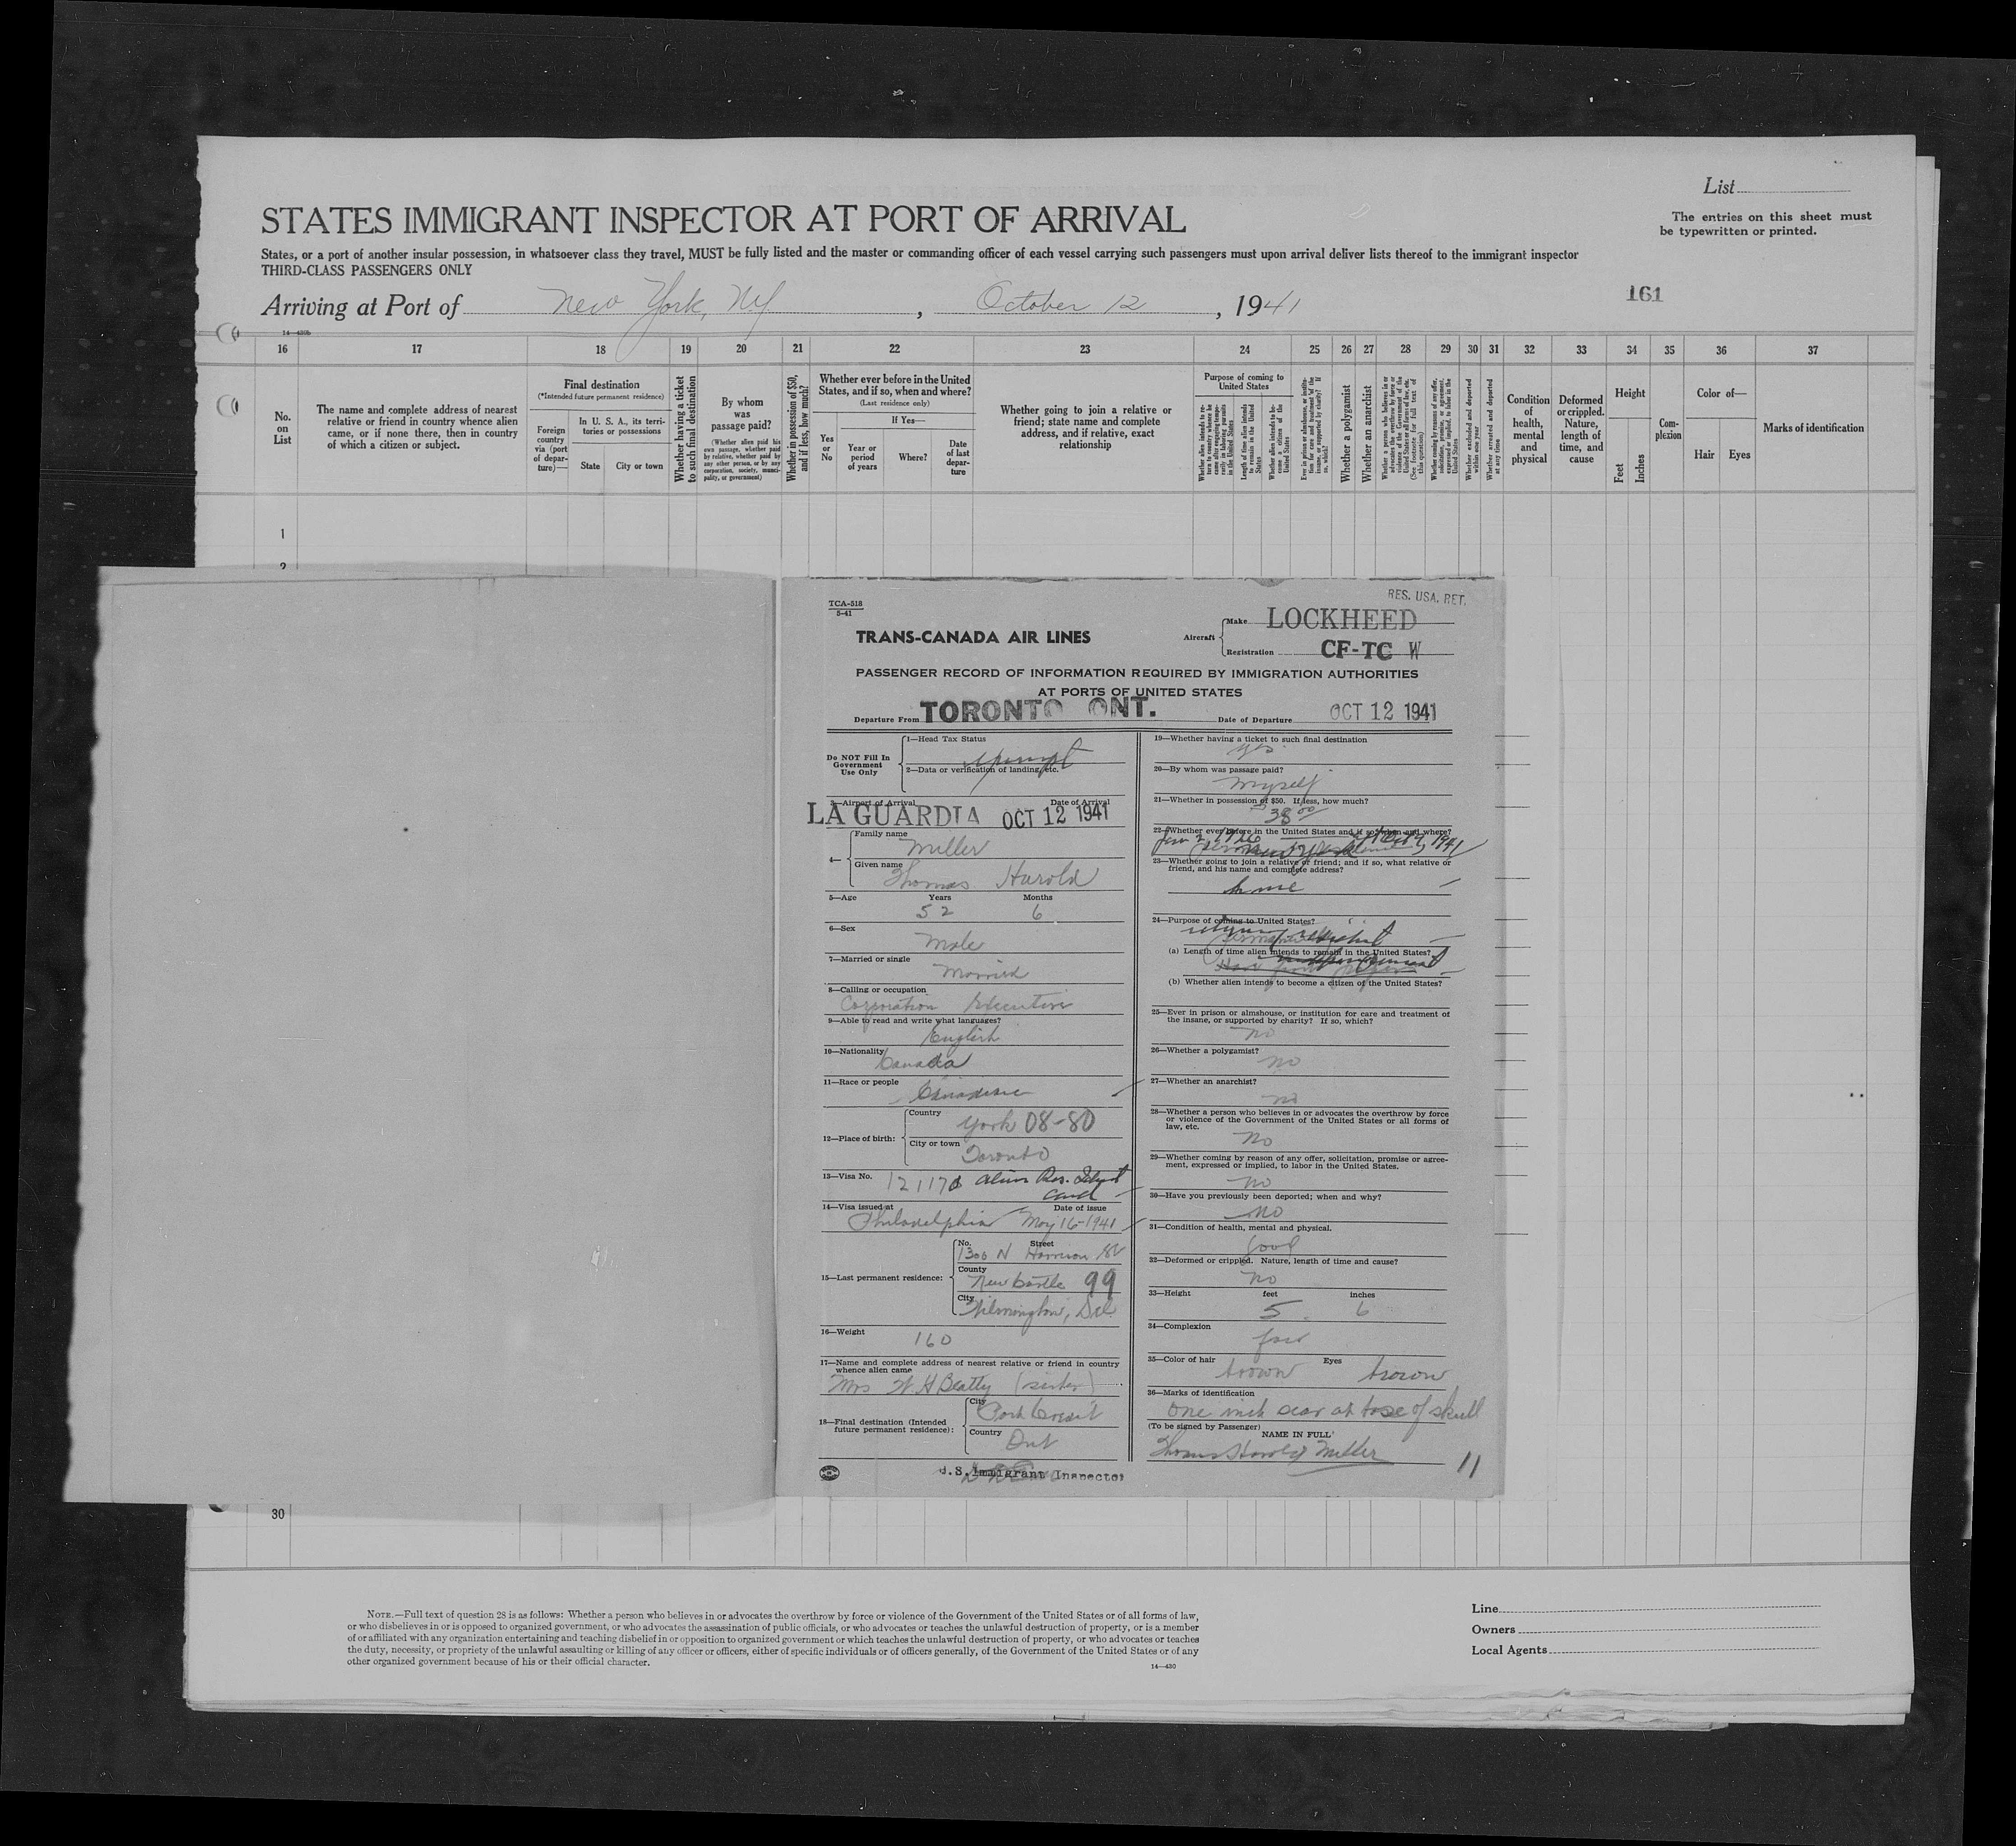 List
The entries on this sheet must
be typewritten or printed.
STATES IMMIGRANT INSPECTOR AT PORT OF ARRIVAL
States, or a port of another insular possession, in whatsoever class they travel, MUST be fully listed and the master or commanding officer of each vessel carrying such passengers must upon arrival deliver lists thereof to the immigrant inspector
THIRD-CLASS PASSENGERS ONLY
Arriving at Port of New York, NY, October 12, 1941
161
16 17 18 19 20 21 22 23 24 25 26 27 28 29 30 31 32 33 34 35 36 37
No. on List
The name and complete address of nearest
relative or friend in country whence alien
came, or if none there, then in country
of which a citizen or subject.
Final destination
(*Intended future permanent residence)
Foreign country via (port of departure)—
In U. S. A., its territories or possessions
State
City or town
Whether having a ticket to such final destination
By whom was passage paid?
(Whether alien paid his own passage, whether paid by relative, whether paid by any other person, or by any corporation, society, municipality, or government)
Whether in possession of $50, and if less, how much?
Whether ever before in the United
States, and if so, when and where?
(Last residence only)
Yes or No
If Yes—
Year or period of years
Where?
Date of last departure
Whether going to join a relative or
friend; state name and complete
address, and if relative, exact
relationship
Purpose of coming to
United States
Whether a polygamist
Whether an anarchist
Whether excluded and deported within one year
Whether arrested and deported at any time
Condition of health, mental and physical
Deformed or crippled. Nature, length of time, and cause
Height
Feet
Inches
Complexion
Color of—
Hair
Eyes
Marks of identification
1
2
TCA-518
5-41
RES. USA. RET.
TRANS-CANADA AIR LINES
Aircraft
Make LOCKHEED
Registration CF-TC W
PASSENGER RECORD OF INFORMATION REQUIRED BY IMMIGRATION AUTHORITIES
AT PORTS OF UNITED STATES
Departure From TORONTO ONT.
Date of Departure OCT 12 1941
Do NOT Fill In
Government
Use Only
1—Head Tax Status
exempt
2—Data or verification of landing, etc.
3—Airport of Arrival Date of Arrival
LA GUARDIA OCT 12 1941
4—
Family name
Miller
Given name
Thomas Harold
5—Age Years Months
52 6
6—Sex
Male
7—Married or single
Married
8—Calling or occupation
Corporation Executive
9—Able to read and write what languages?
English
10—Nationality
Canada
11—Race or people
Canadian
12—Place of birth:
Country
York 08-80
City or town
Toronto
13—Visa No. Alien Res. Ident
Card
14—Visa issued at Date of issue
Philadelphia May 16-1941
15—Last permanent residence:
No. Street
1300 N Harrison St
County
New Castle 99
City
Wilmington, Del
16—Weight
160
17—Name and complete address of nearest relative or friend in country
whence alien came
Mrs W. H Beatty (sister)
18—Final destination (Intended
future permanent residence):
City
Port Credit
Country
Ont
U.S. Immigrant Inspector
19—Whether having a ticket to such final destination
yes
20—By whom was passage paid?
Myself
21—Whether in possession of $50. If less, how much?
38 00
22—Whether ever before in the United States and if so, when and where?
23—Whether going to join a relative or friend; and if so, what relative or
friend, and his name and complete address?
home
24—Purpose of coming to United States?
(a) Length of time alien intends to remain in the United States?
(b) Whether alien intends to become a citizen of the United States?
25—Ever in prison or almshouse, or institution for care and treatment of
the insane, or supported by charity? If so, which?
no
26—Whether a polygamist?
no
27—Whether an anarchist?
no
28—Whether a person who believes in or advocates the overthrow by force
or violence of the Government of the United States or all forms of
law, etc.
no
29—Whether coming by reason of any offer, solicitation, promise or agree-
ment, expressed or implied, to labor in the United States.
no
30—Have you previously been deported; when and why?
no
31—Condition of health, mental and physical.
Good
32—Deformed or crippled. Nature, length of time and cause?
no
33—Height feet inches
5 6
34—Complexion
fair
35—Color of hair Eyes
brown brown
36—Marks of identification
One inch scar at base of skull
(To be signed by Passenger)
NAME IN FULL
Thomas Harold Miller
11
30
NOTE.—Full text of question 28 is as follows: Whether a person who believes in or advocates the overthrow by force or violence of the Government of the United States or of all forms of law,
or who disbelieves in or is opposed to organized government, or who advocates the assassination of public officials, or who advocates or teaches the unlawful destruction of property, or is a member
of or affiliated with any organization entertaining and teaching disbelief in or opposition to organized government or which teaches the unlawful destruction of property, or who advocates or teaches
the duty, necessity, or propriety of the unlawful assaulting or killing of any officer or officers, either of specific individuals or of officers generally, of the Government of the United States or of any
other organized government because of his or their official character.
14—430
Line
Owners
Local Agents